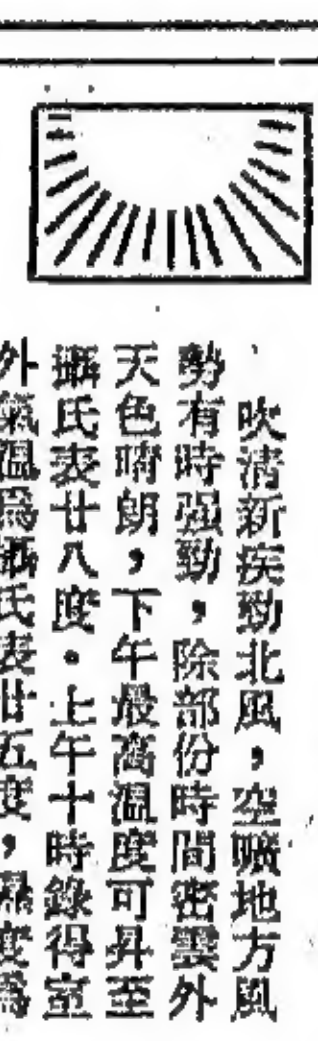 吹清新疾勁北風，空曠地方風
勢有時强勁，除部份時間密雲外
天色晴朗，下午最高溫度可昇至
攝氏表廿八度。上午十時錄得室
外氣溫爲攝氏表廿五度，濕度爲